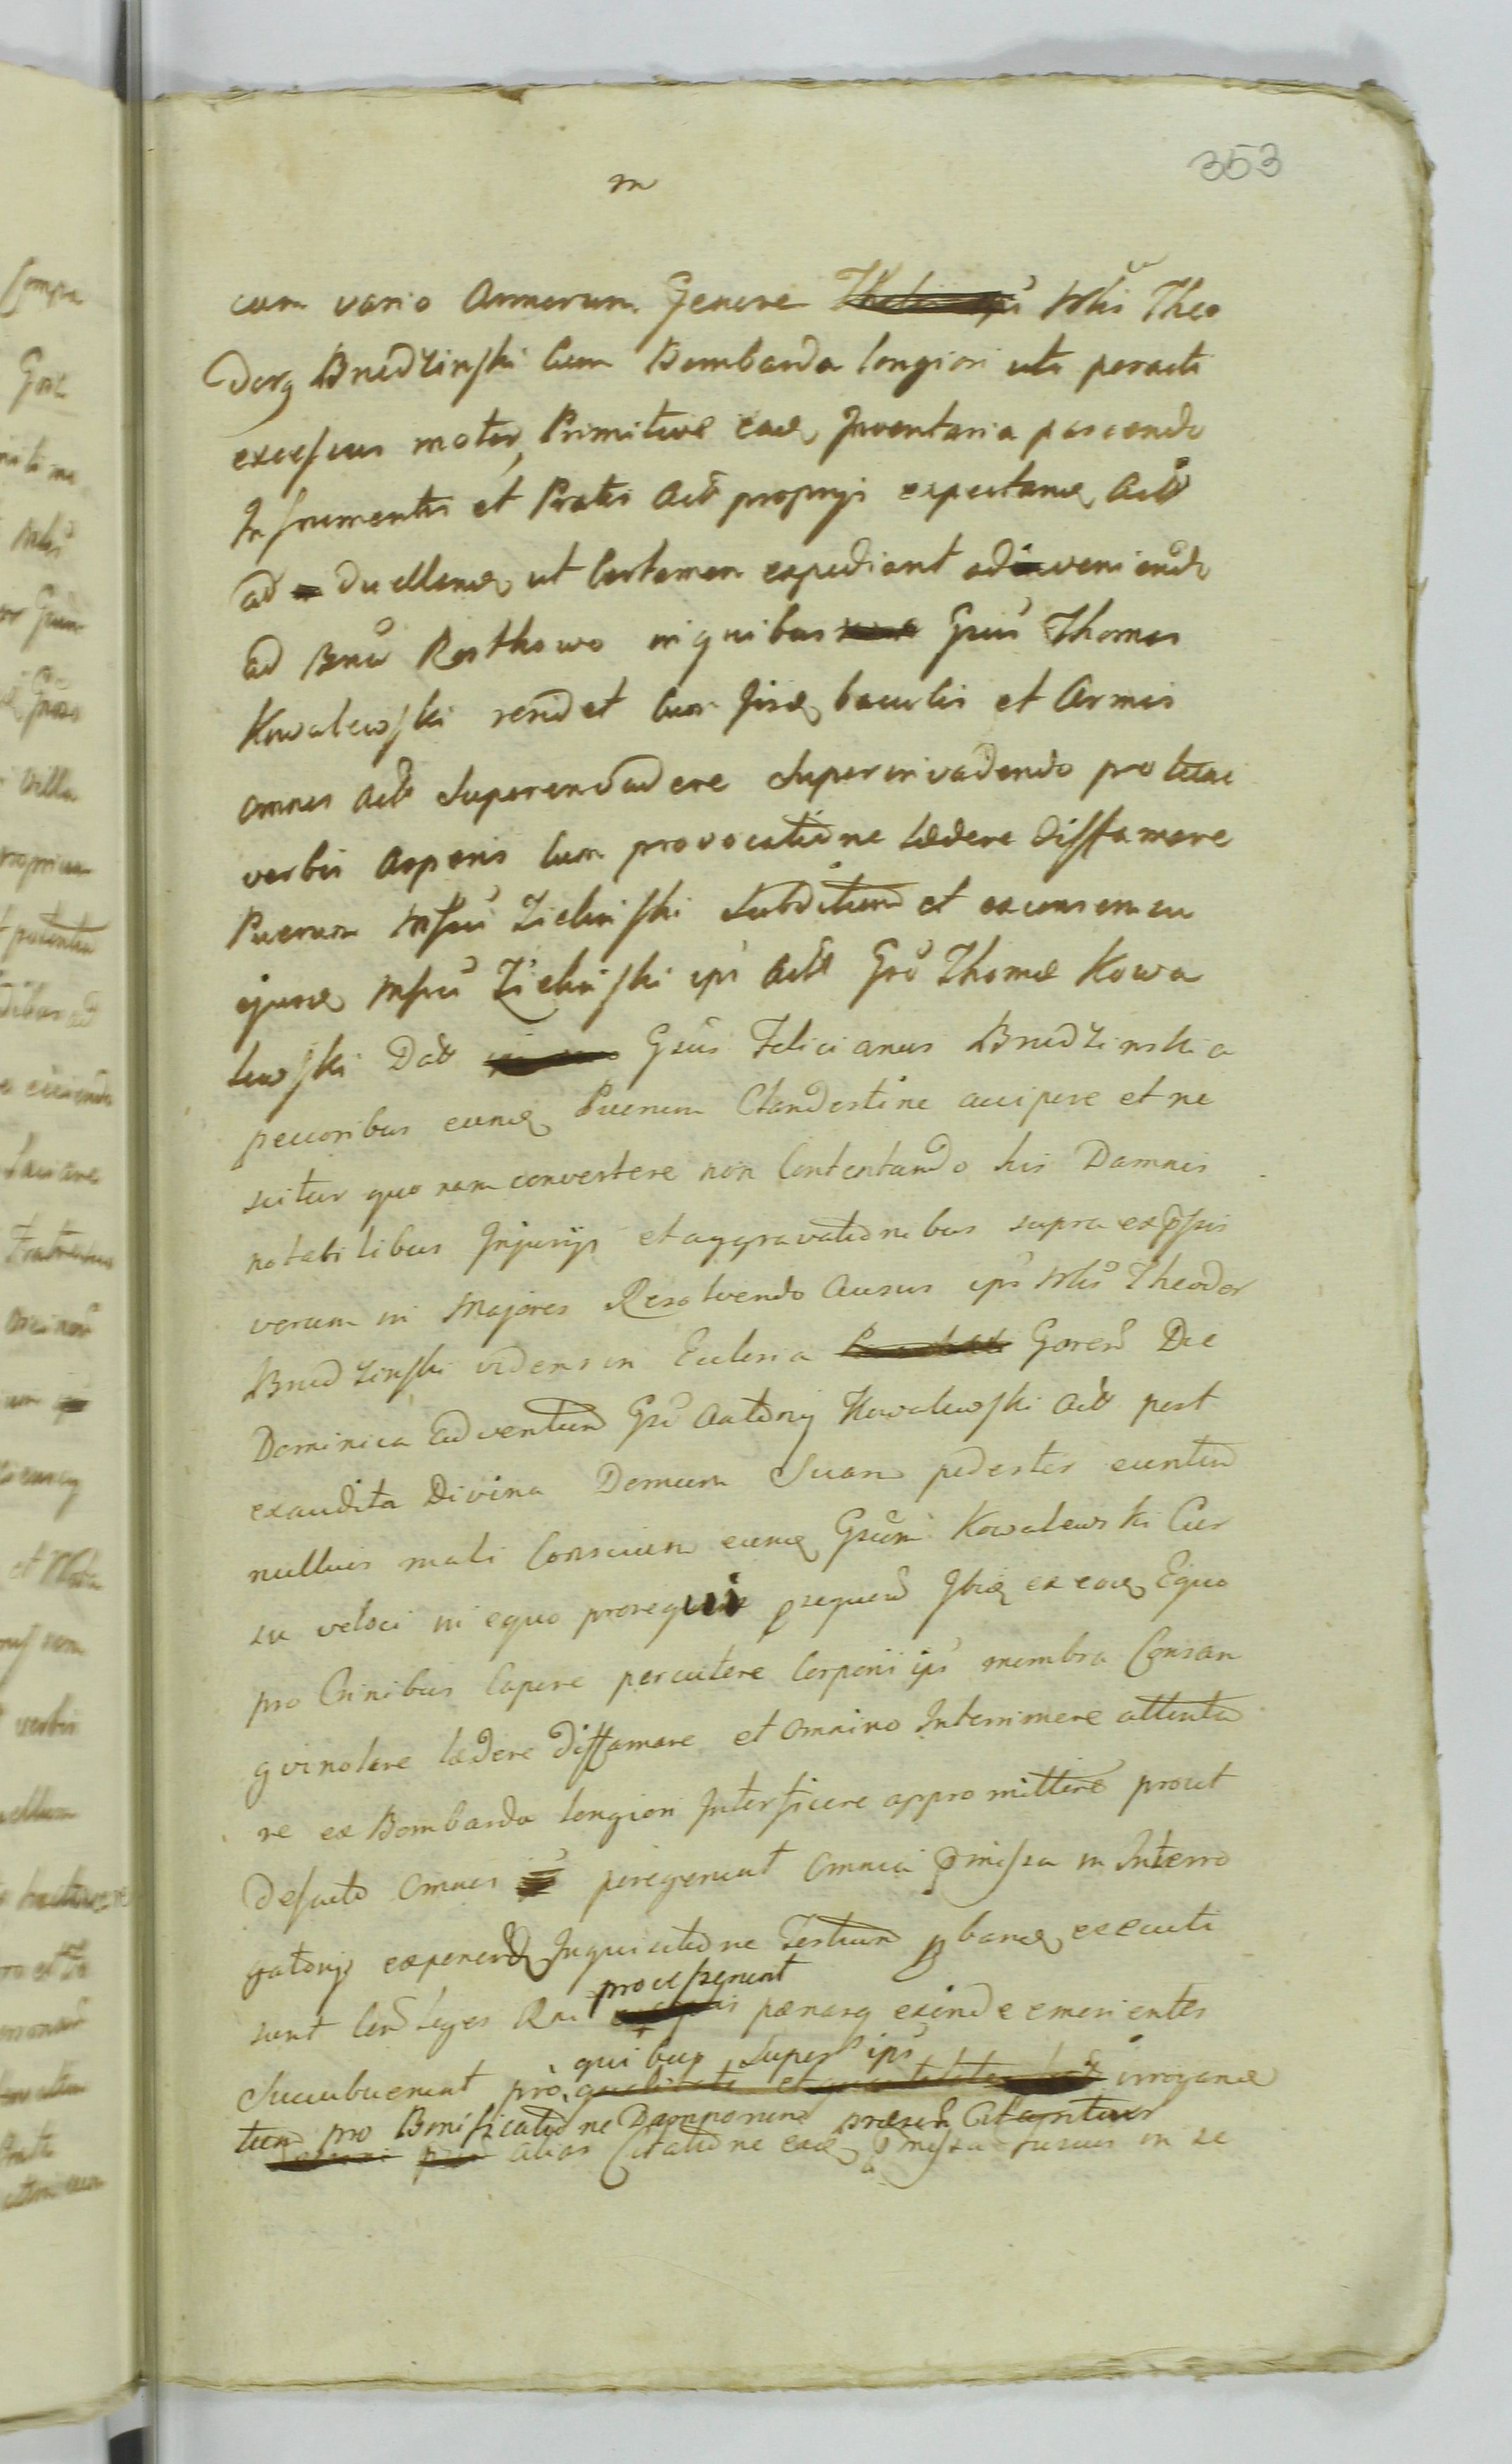 353
m
cum vario Armorum Genere Mfis Theo
dorg Brudzinski Cum Bombarda longiori uti peracti
excessus motor Primitive eadq Inventaria pascendo
In frumentis et Pratis Actt proprys expectanq Actt
ad duellanq ut Certamen expediant adinveniendo
ad Bna Rostkowo in quibus Gsus Thomas
Kowalewski residet cum Jisdq baculis et Armis
omnes Actt superendadere superinvadendo protunc
verbis Asperis cum provocatione lædere diffamare
Puerum Mfici Zielinski Subditum et ex censu
ejusdq Mfici Zielinski ipi Actt Gso Thomæ Kowa
lewski Datt Gsus Felicianus Brudzinski a
pecoribus eundq Puerum Clandestine accipere et ne
scitur quo nam convertere non Contentando his Damnis
notabilibus Injurijs et aggravationibus supra exprssis
verum in Majores Resolvendo Ausus ips Mfis Theodor
Brudzinski videns in Ecclesia Goren Die
Dominica adventum Gsi Antonij Kowalewski Actt post
exaudita Divina Domum Suam pedester euntem
nullius mali Conscium eundq Gsum Kowalewski Cur
su veloci in equo prosequi psequen Ibidq ex eodq Equo
pro Crinibus Capere percutere Corporis ips membra Consan
gvinolare lædere diffamare et omnino Interimere attenta
re ex Bombarda longiori Interficere appromittere prout
defacto omnes peregerunt omnia pmissa in Interro
gatorys exponend Inquisitione Testium pbandq executi
sunt Cen Leges Rni processerunt pænasq exinde emerientes
Succubuerunt pro quibus super ips irrogandq
tum pro Bonificatione Damnorum præsen Citantur
alias Citatione eadq pmissa fusius in se